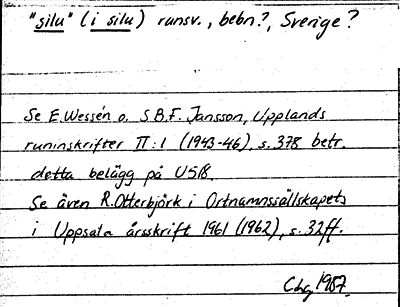 "silu" (i silu) runsv., bebn?, Sverige?
Se E. Wessén o. S B.F. Jansson, Upplands
runinskrifter II:1 (1943-46), s. 378 betr.
detta belägg på U 518.
Se även R. Otterbjörk i Ortnamnssällskapets
i Uppsala årsskrift 1961 (1962), s. 32ff.
Chg 1987.